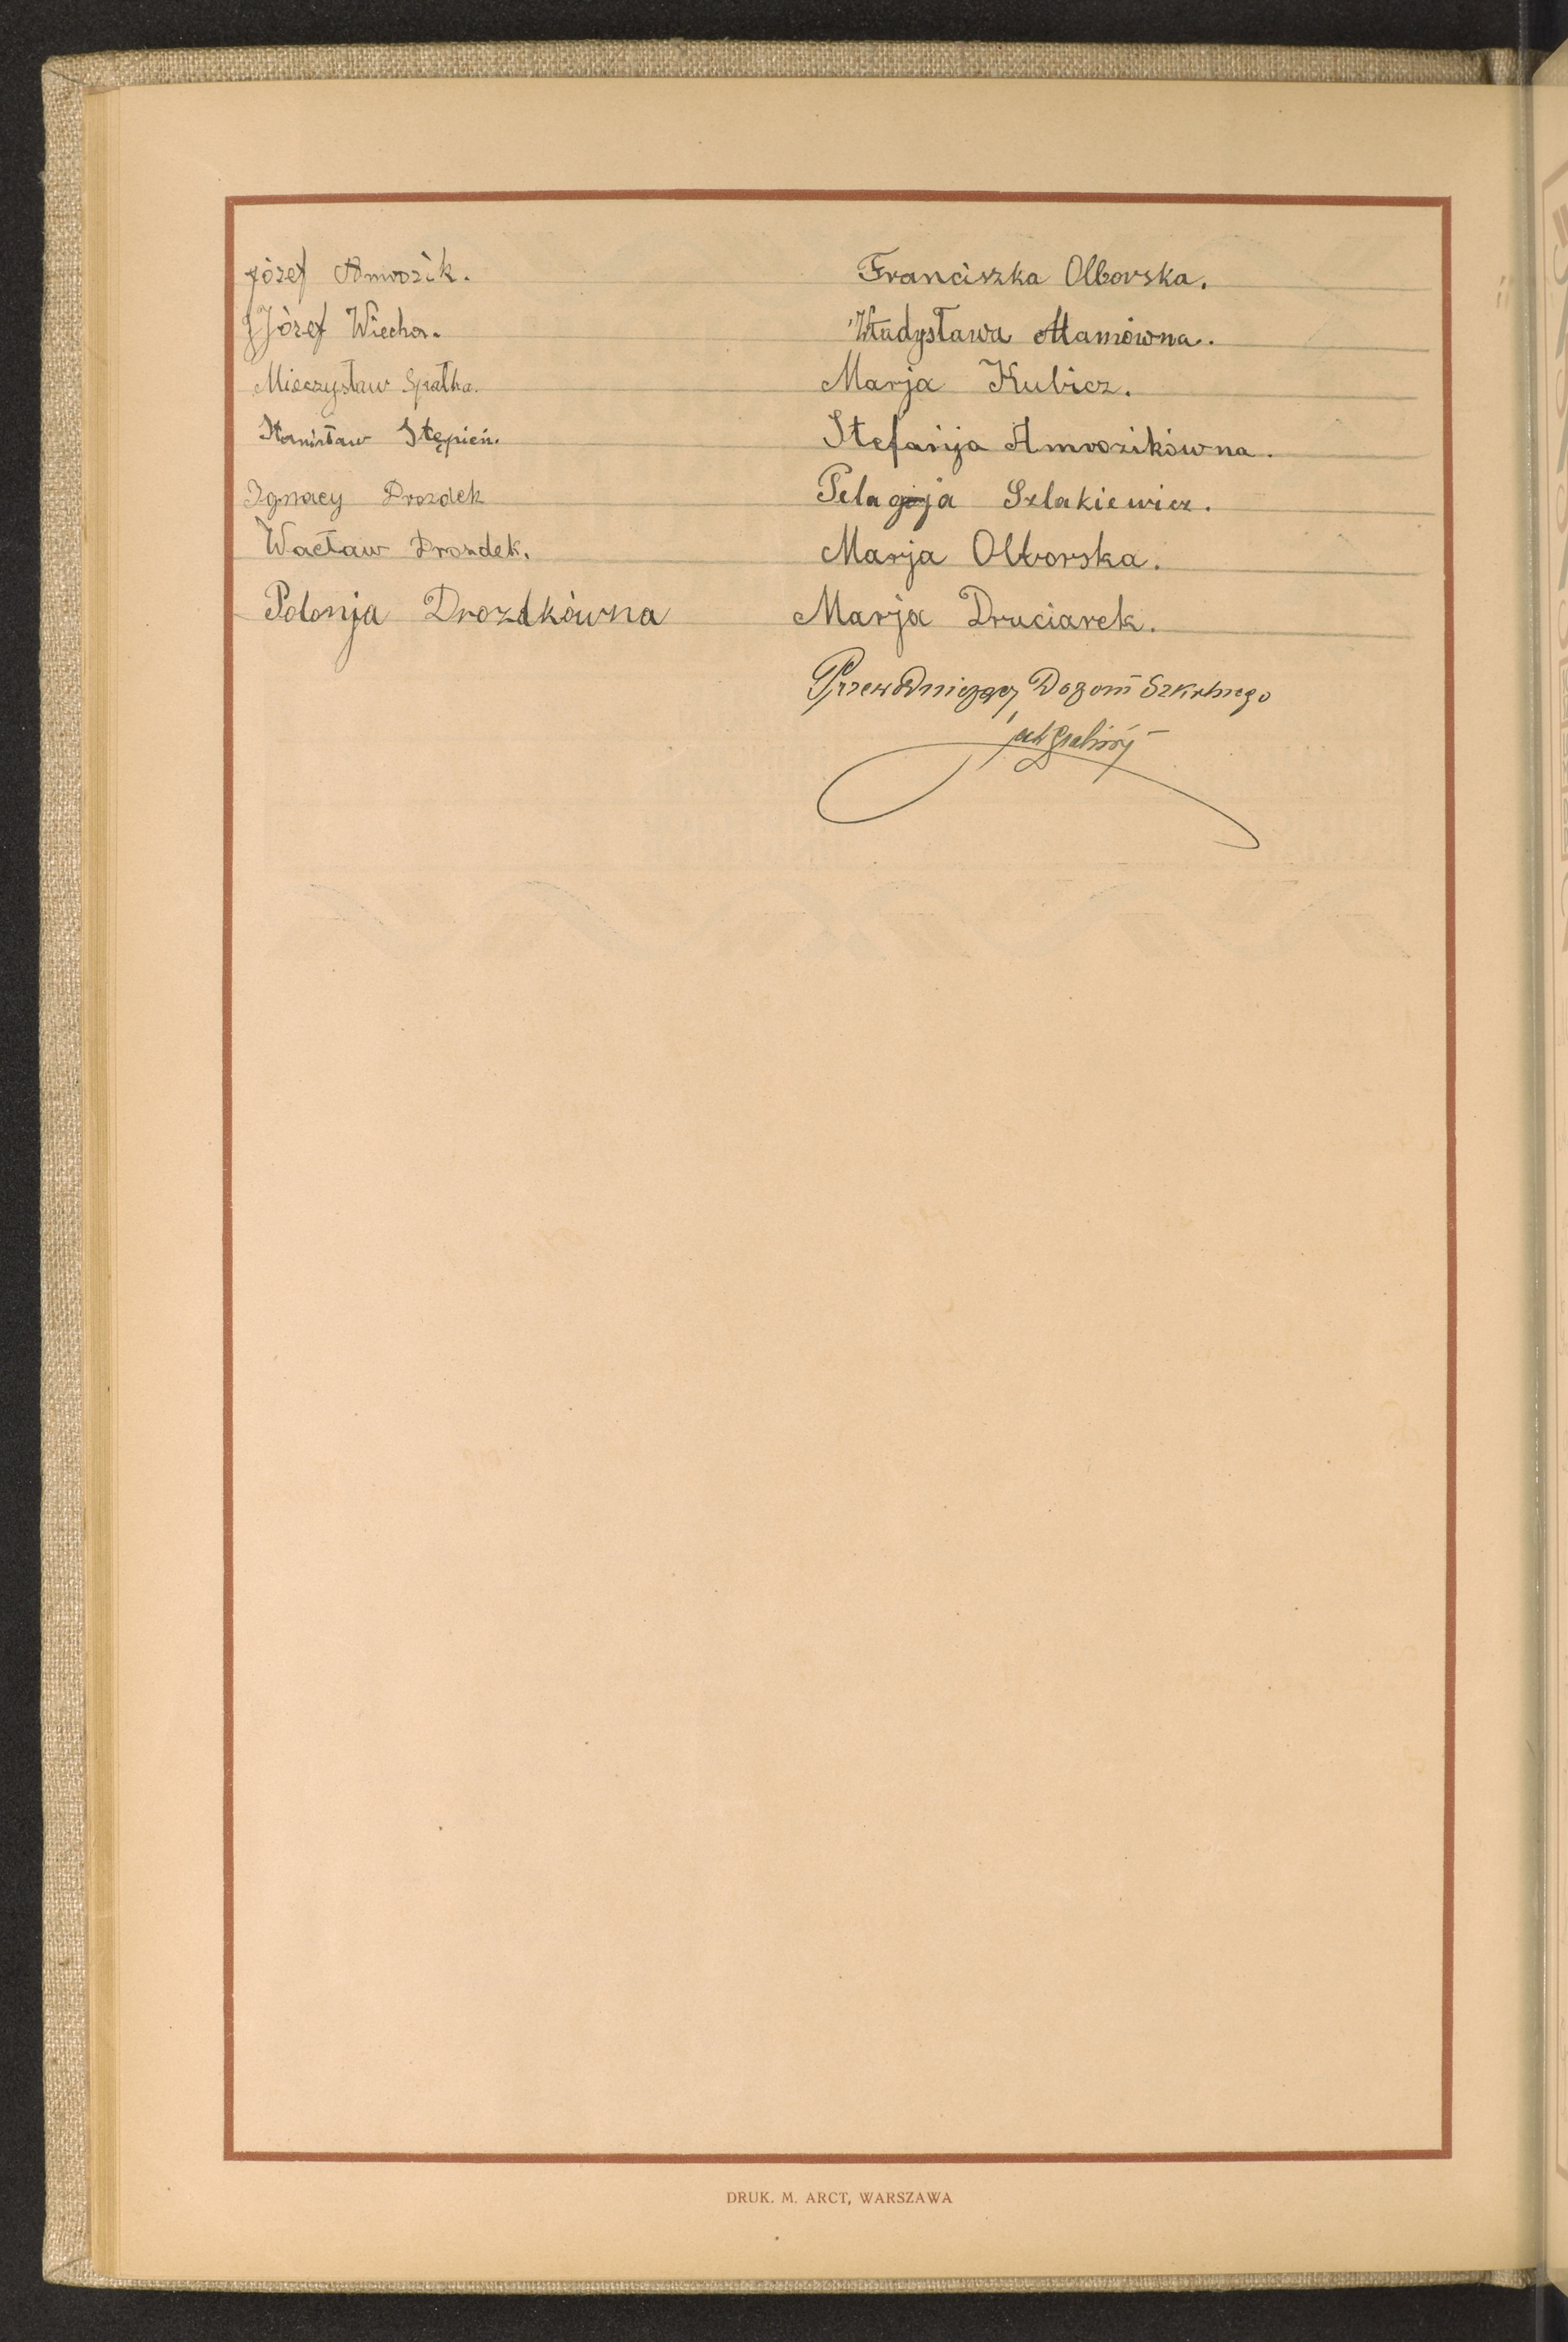 Józef Amrozik.
Józef Wiecha.
Mieczysław Spałka.
Stanisław Stępień.
Ignacy Drozdek
Wacław Drozdek.
Polonja Drozdkówna
Franciszka Olborska.
Władysława Adamówna.
Marja Kubicz.
Stefanja Amrozikówna.
Pelagja Szlakiewicz.
Marja Olborska.
Marja Druciarek.
Przewodniczący Dozoru Szkolnego
DRUK. M. ARCT, WARSZAWA